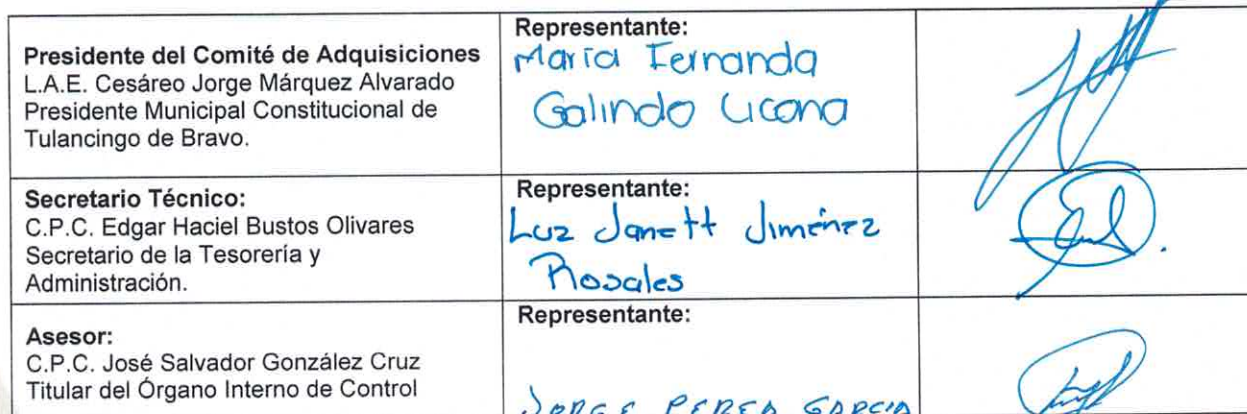 Presidente del Comité de Adquisiciones
L.A.E. Cesáreo Jorge Márquez Alvarado
Presidente Municipal Constitucional de
Tulancingo de Bravo.
Representante:
María Fernanda
Galindo Licona
Secretario Técnico:
C.P.C. Edgar Haciel Bustos Olivares
Secretario de la Tesorería y
Administración.
Representante:
Luz Janett Jiménez
Rosales
Asesor:
C.P.C. José Salvador González Cruz
Titular del Órgano Interno de Control
Representante:
JORGE PEREA GARCIA